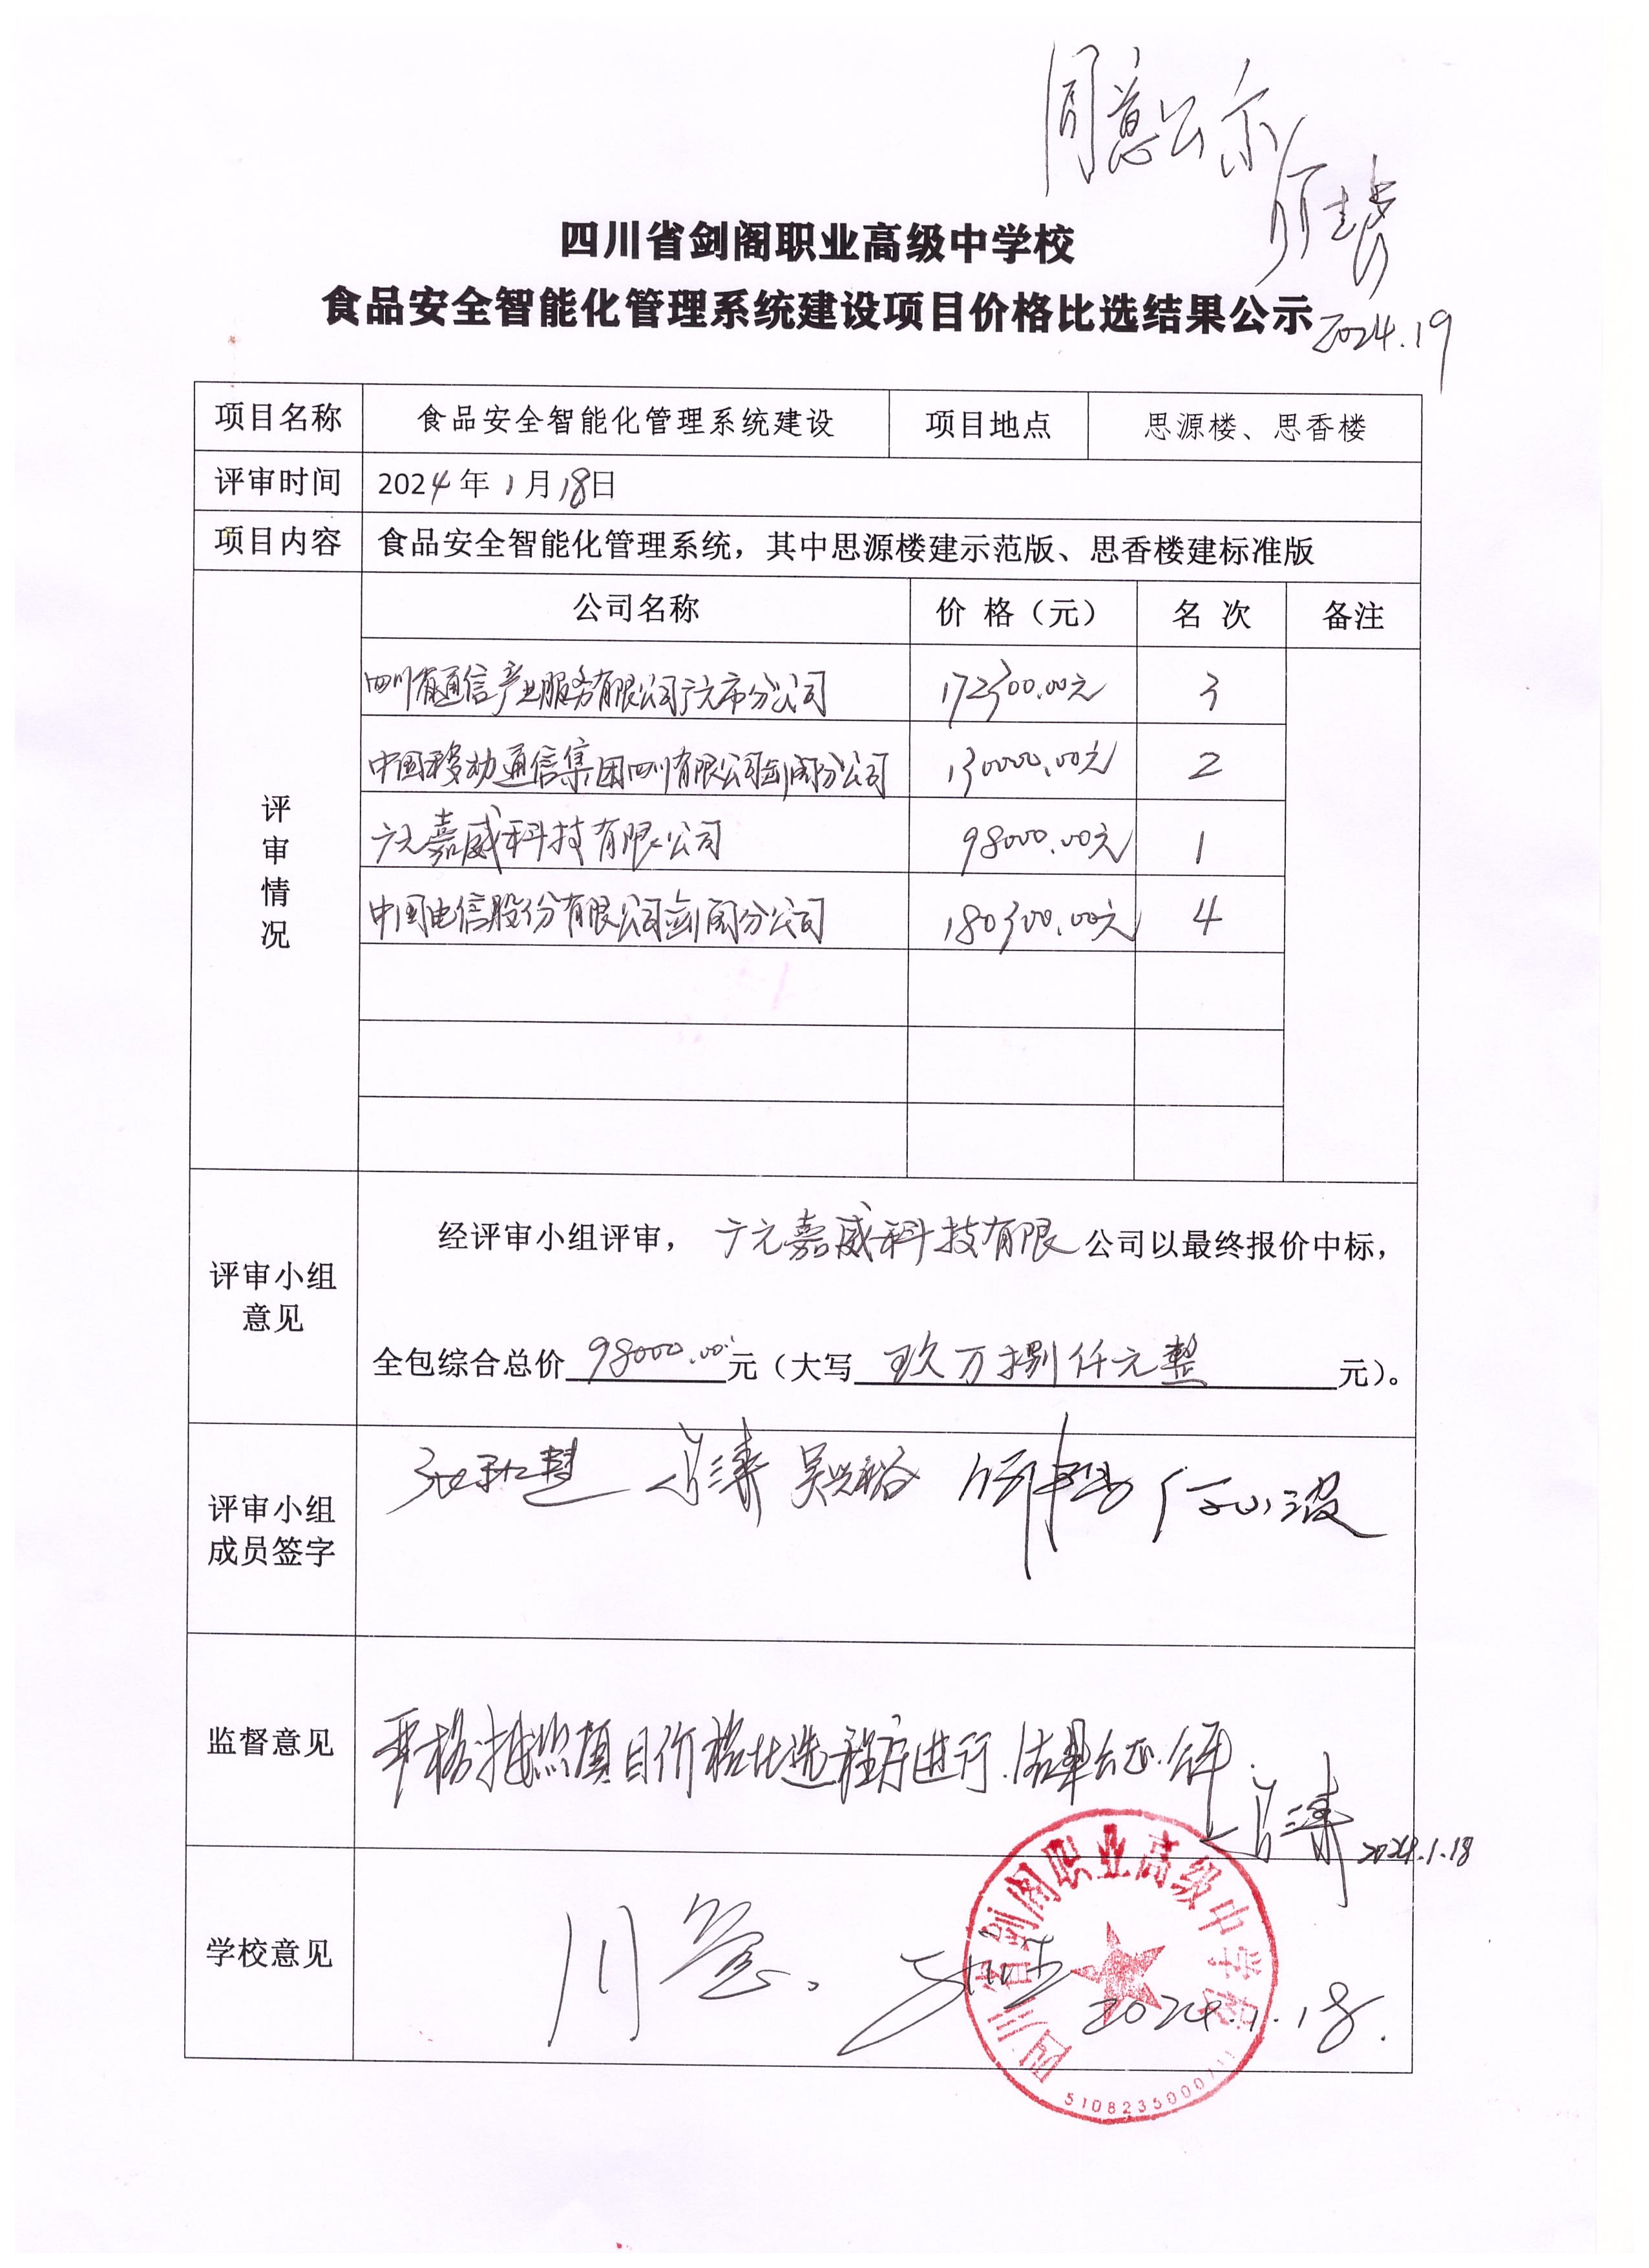 同意公示
2024.19
四川省剑阁职业高级中学校
食品安全智能化管理系统建设项目价格比选结果公示
项目名称 食品安全智能化管理系统建设 项目地点 思源楼、思香楼
评审时间 2024年1月18日
项目内容 食品安全智能化管理系统，其中思源楼建示范版、思香楼建标准版
评审情况
公司名称 价 格（元） 名 次 备注
四川省通信产业服务有限公司广元市分公司 172300.00元 3
中国移动通信集团四川有限公司剑阁分公司 130000.00元 2
广元嘉威科技有限公司 98000.00元 1
中国电信股份有限公司剑阁分公司 180300.00元 4
评审小组意见
经评审小组评审，广元嘉威科技有限公司以最终报价中标，
全包综合总价98000.00元（大写 玖万捌仟元整 元）。
评审小组成员签字
吴兴裕
监督意见 严格按照项目价格比选程序进行.结果公正.公平.
2024.1.18
学校意见
2024.1.18.
四川省剑阁职业高级中学校